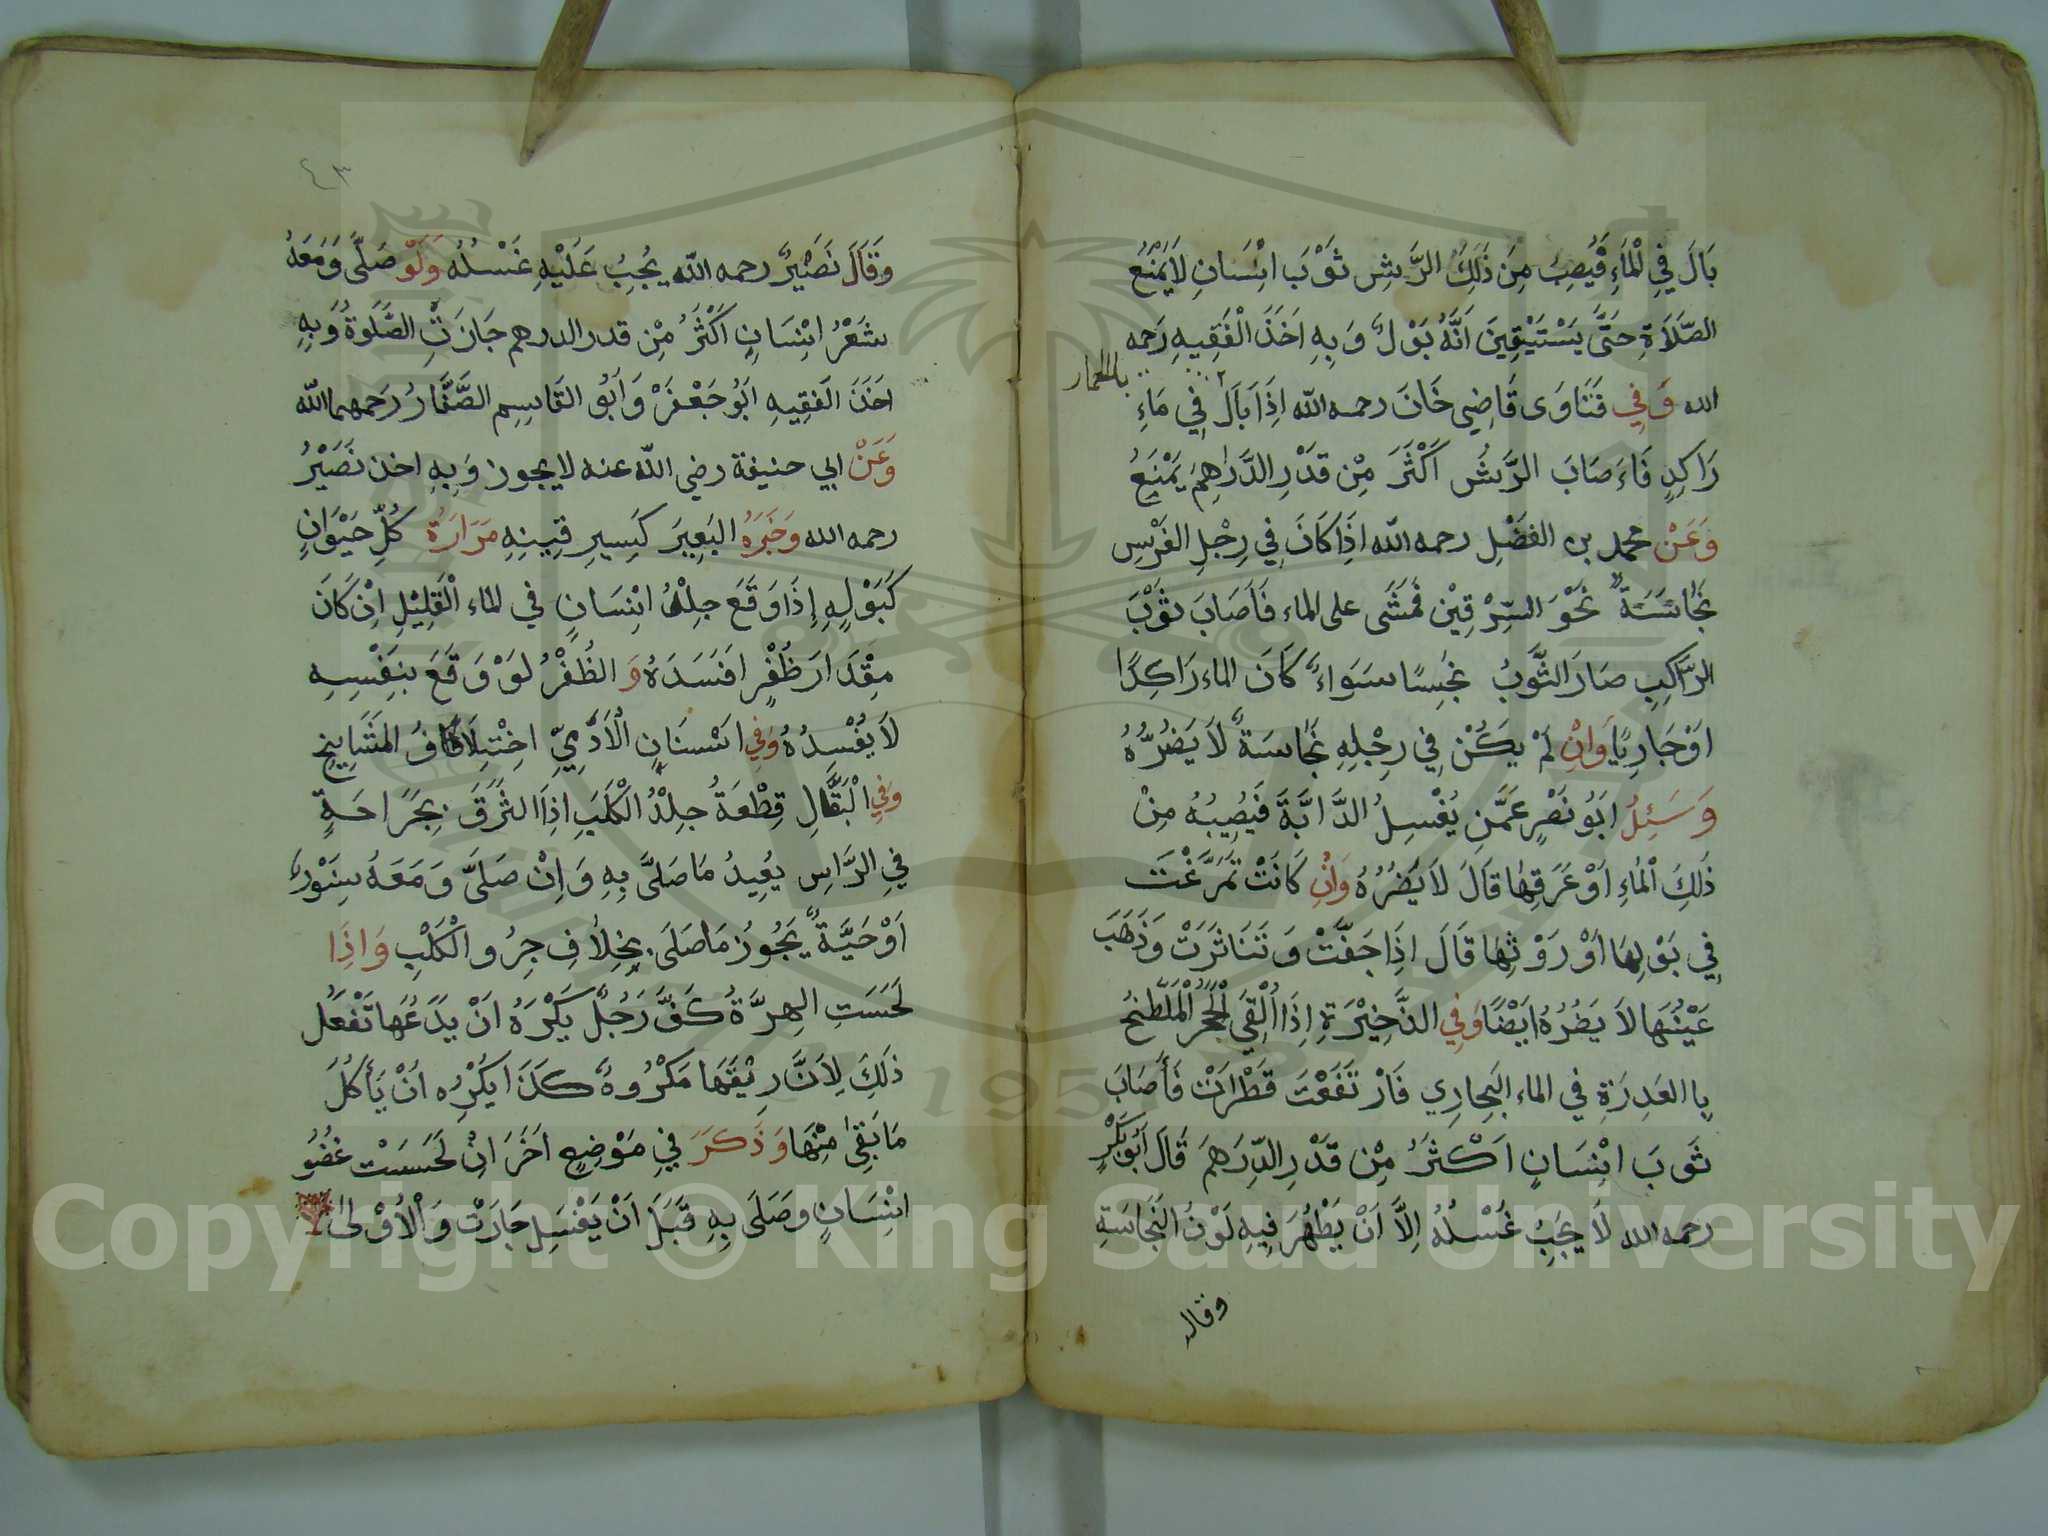 بَالَ فِي الْمَاءِ فَيُصِبُ مِنَ ذَلِكَ الرَّشِ ثَوْبَ انْسَانِ لَا يَمْنَعُ
الصَّلَاةِ حَتَّى يَسْتَيْقِينَ اَنَّهُ بَوْلٌ وَبِهِ اَخَذَ الْفَقِيهِ رَحمه
الله وَفِي فَتَاوَى قَاضِي خَانَ رحمه الله اِذَا بَالَ فِي مَاءِ
بالحمار
رَاكِدٍ فَاَصَابَ الرَّشُ اَكْثَرَ مِنْ قَدْرِ الدَّرَاهِمِ يَمْنَعُ
وَعَنْ محمد بن الفَضْلِ رحمه الله اِذَا كَانَ فِي رِجْلِ الفَرْسِ
نَجَاسَةٌ نَحْوَ السِّرْقِيْنِ فَمَشَى على الماء فَاَصَابَ ثَوْبَ
الرَّاكِبِ صَارَ الثَّوبُ نَجِسًا سَوَاءً كَانَ الماء رَاكِدًا
اَوْ جَارِيًا وَانْ لَمْ يَكُنْ فِي رِجْلِهِ نَجَاسَةٌ لَا يَضُرُّهُ
وَسَئِلُ ابَوُ نَصْرٍ عَمَّنِ يُغْسِلُ الدَّابَّةَ فَيُصِيبُهُ مِنْ
ذَلِكَ الْمَاءِ اَوْ عَرَقِهَا قَالَ لَا يَضُرُهُ وَانِ كَانَتْ تَمَرَّغَتْ
فِي بَوْلِهَا اَوْ رَوْثِهَا قَالَ اذَا جَفَّتْ وَتَنَاثَرَتْ وَذَهَبَ
عَيْنُهَا لَا يَضُرُهُ ايَضًا وَفِي الذَّخِيْرَةِ اِذَا اُلْقِيَ الْحَجَرُ الْمُلَطَّخُ
بِا العَدِرَةِ في الماء الْجَارِي فَارْتَفَعْتَ قَطْرَاتْ فَأَصَابَ
ثَوبَ انْسَانٍ اَكْثَرُ مِنْ قَدْرِ الدِّرَهِمَ قَالَ اَبُو بَكْرٍ
رحمه الله لَا يَجِبُ غُسْلُهُ اِلَّا اَنْ يَظْهَرَ فِيهِ لَوْنُ النَجَاسَةِ
وقال
٤٣
وَقَالَ نَصَيْرٌ رحمه الله يَجُبِ عَلَيْهِ غَسْلُهُ وَلَوْ صَلَّى وَمَعَهُ
شَعْرُ انْسَانٍ اَكْثَرُ مِنْ قدر الدرهم جَازَتِ الصَّلَوةُ وَبِهِ
اخَذَ الفَقِيهِ ابَوُ جَعْفَرْ وَابُو القَاسِمِ الصَّفَّارُ رَحمهما الله
وَعَنْ ابي حنيفة رضي الله عنه لا يجوز وَبِهِ اخذ نُصَيْرُ
رحمه الله وَخَبَرَهُ البَعِيرَ كَبَسِيرِ قِيبِنِهِ مَرَارَةُ كُلِّ حَيْوَانٍ
كَبَوْلِهِ إِذَا وَقَعَ جِلْدُ انْسَانٍ في الماء الْقَلِيْلِ اِنْ كَانَ
مِقْدَارَ ظُفْرٍ افَسَدَهُ وَ الظُفْرُ لَوْ وَقَعَ بنَفْسِهِ
لَا يُفْسِدُهُ وَفِي اسْسنَانِ الْاَدَمِيِّ اخِتْلَافُ المَشَايِخِ
وَفِي الْبَقَّالِ قِطْعَةُ جِلْدُ الْكَلَبِ اِذَا الْتُزَقَ بجَرَاحَةٍ
فِي الرَّاسِ يُعِيدُ مَا صَلَّى بِهِ وَاِنْ صَلَّى وَمَعَهُ سِنَّوْرٌ
اَوْ حَيَّةٌ يَجُوزُ مَا صَلَى بخِلَافِ جِرُو الْكَلْبِ وَاذَا
لَحَسَتِ الهِرَّةُ كَفَّ رَجُلٌ يَكْرَهُ اَنْ يَدَعُهَا تَفْعَلُ
ذَلَكَ لِاَنَّ رِيْقَهَا مَكْرُوهٌ كَذَا يَكُرْه اَنْ يَأكُلُ
مَا بَقِيَ مِنْهَا وَذَكَرَ فِي مَوْضِعٍ اخَرَ انْ لَحَسَتْ عُضْوُ
انْسَانٍ وَصَلَى بِهِ قَبَلَ اَنْ يَغْسِلِ جَازَتْ وَالْاُوْلَى